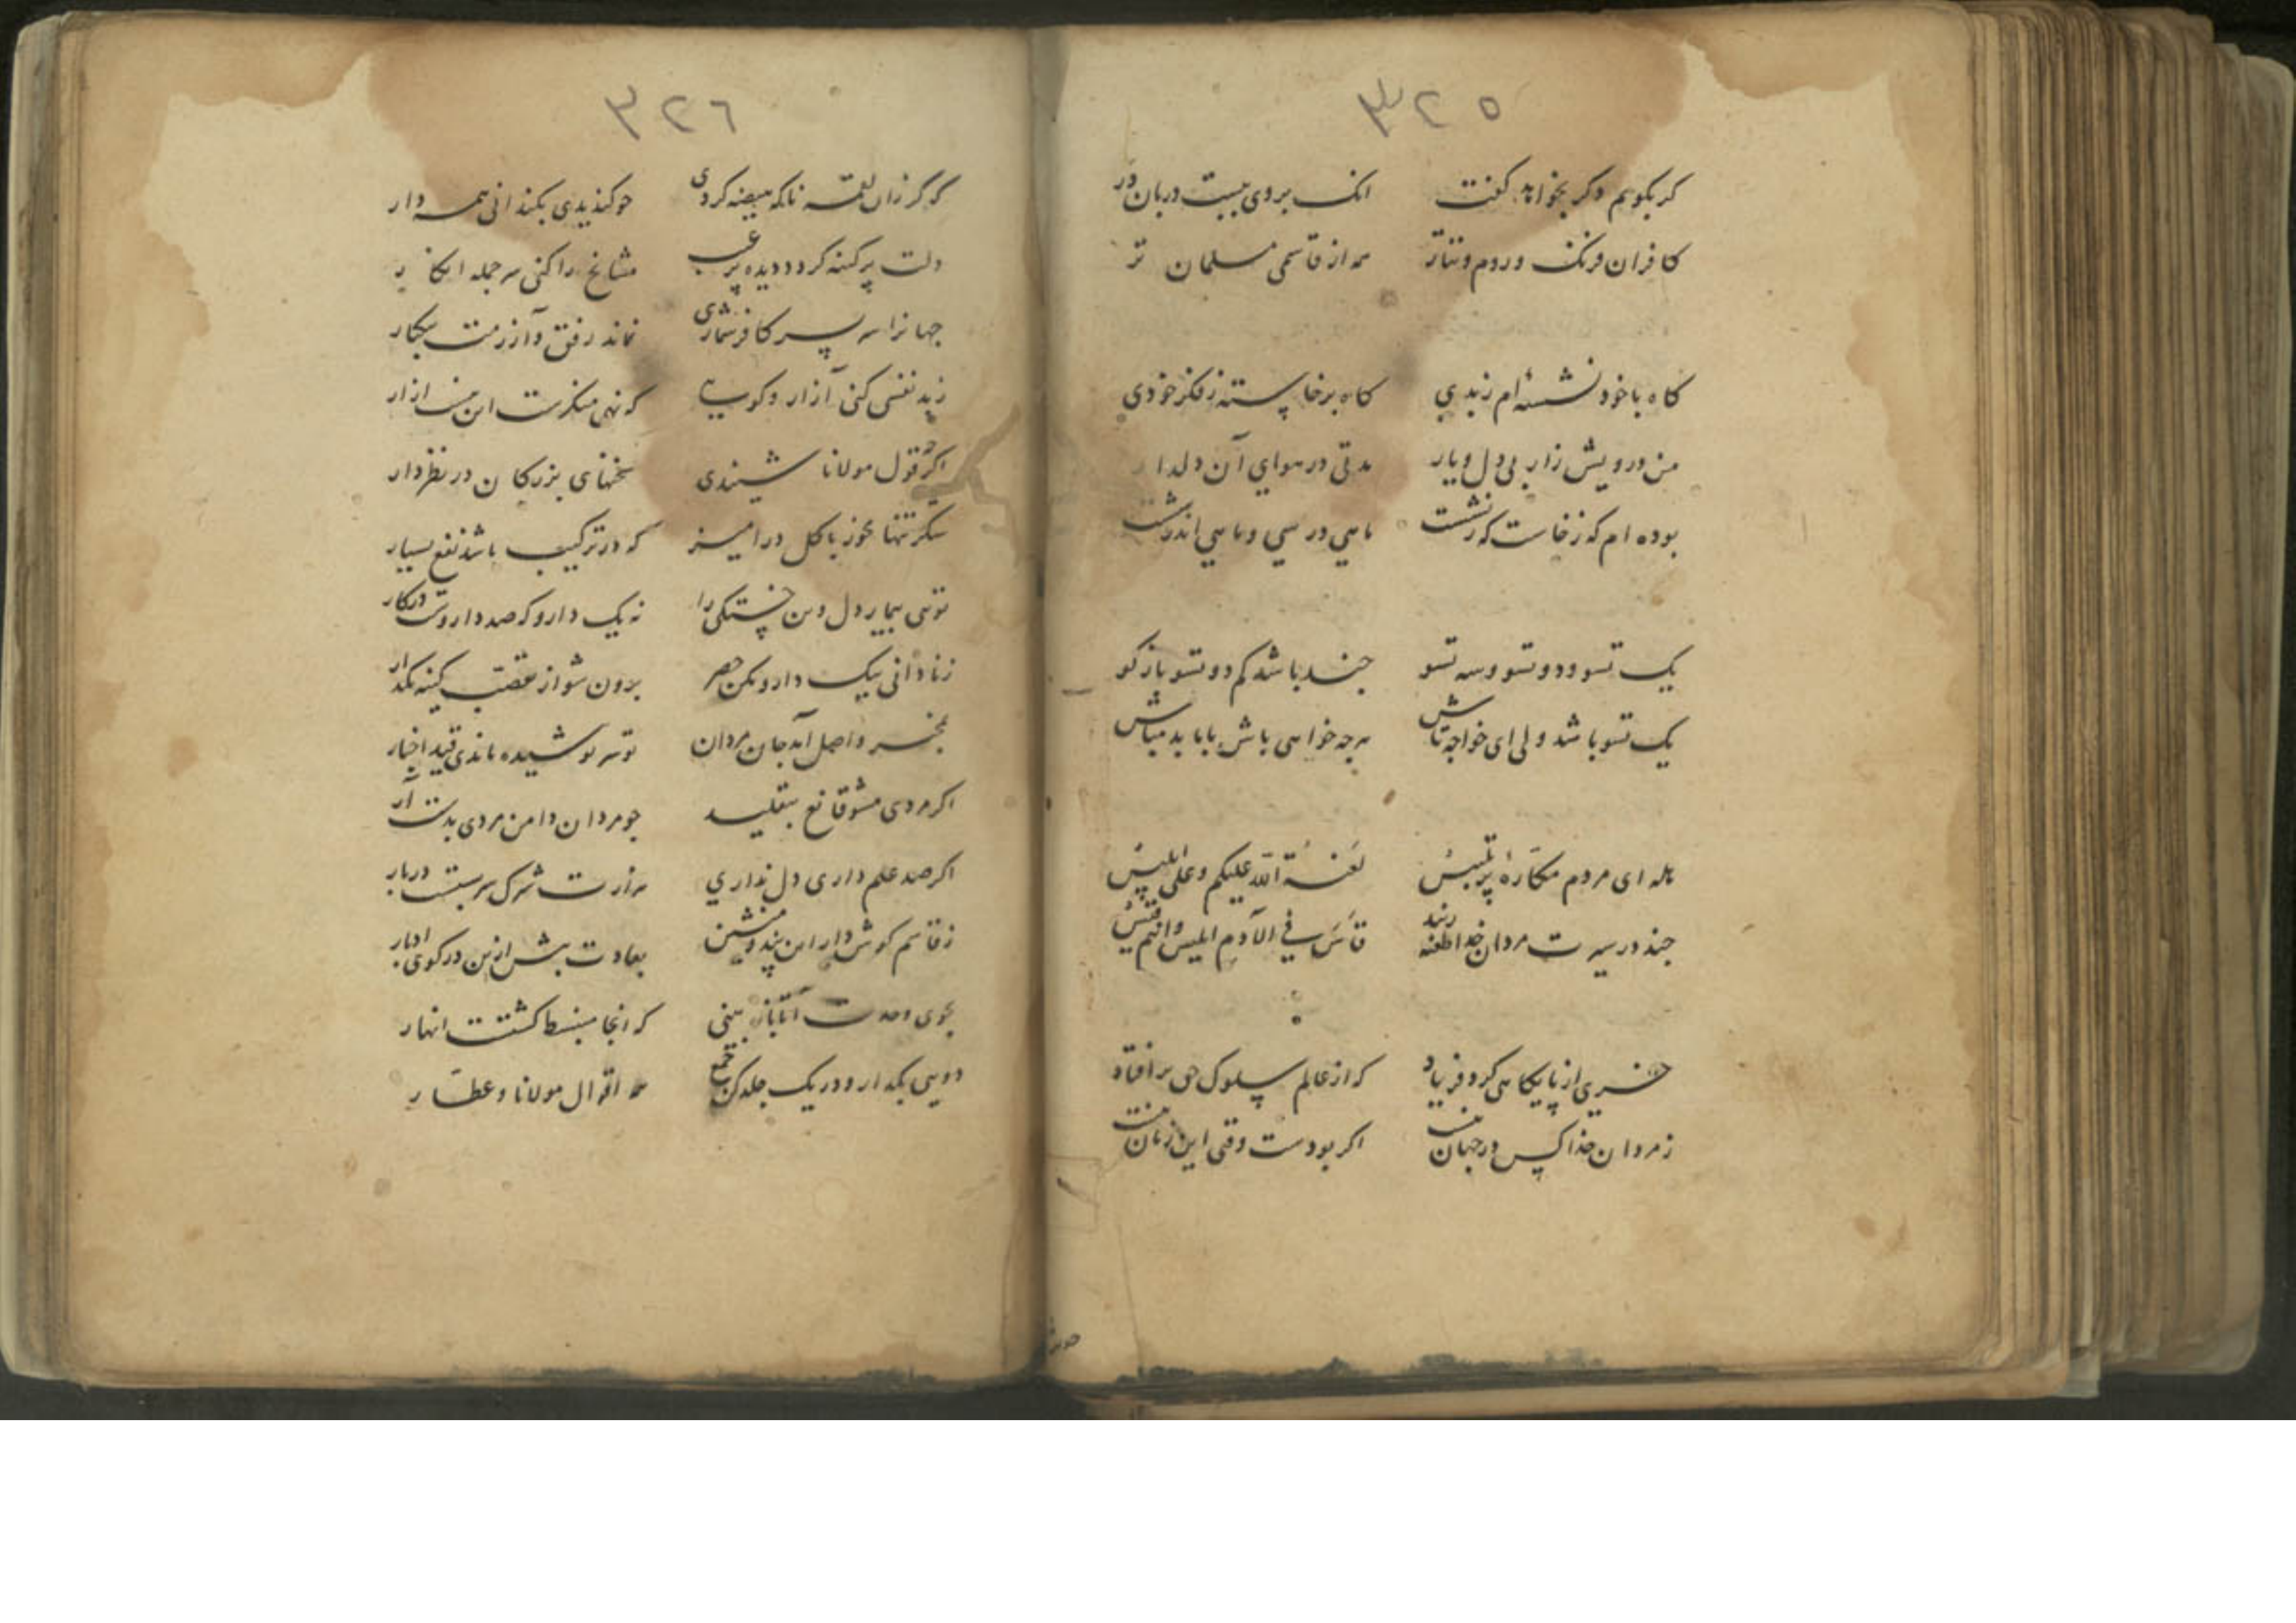 ٣٢٥
کر بکویم وکر بخواند کفت انک بر وی نیست دربان در
کافران فرنک و روم و تتار همه از قاسمی مسلمان تر
کاه با خود نشسته ام زبدی کاه برخاسته ز فکر خودی
من درویش زار بی دل و یار مدتی در هوای آن دلدار
بوده ام که نخاست که نشست ماهی در سی و ماهی اندر شست
یک تسو و دو تسو و سه تسو چند باشد کم دو تسو بازکو
یک تسو باشد ولی ای خواجه تاش هرچه خواهی باش بابا بد مباش
هله ای مردم مکارهٔ پرتلبیس لعنة الله علیکم وعلی ابلیس
چند در سیرت مردان خدا طعنه زنید قاس فی الآدم ابلیس وانتم
خری از پایکاهی کرد فریاد که از عالم سلوک حق برافتاد
ز مردان خدا کس در جهان نیست اکر بودست وقتی این زمان نیست
٣٢٦
که کر زان لقمه ناکه کردی چو کندیدی بکندانی همه دار
دلت پر کینه کردد دیده پر عیب مشایخ را کنی هر جمله انکار
جهانرا سر بسر کافر شماری نماند رفق و آزرمت بیکبار
ز بد نفسی کنی آزار و کویی که نهی منکرست این نیست ازار
اکر قول مولانا شنیدی سخنهای بزرکان در نظر دار
شکر تنها مخور با کل درامیز که در ترکیب باشد نفع بسیار
توئی بیمار دل وین خستکی را نه یک دارو که صد داروست درکار
ز نادانی بیک دارو مکن حصر برون شو از تعصب کینه بکذار
بخسر واصل آمد جان مردان تو سر پوشیده ماندی قید اخبار
اکر مردی مشو قانع بتقلید چو مردان دامن مردی بدست آر
اکر صد علم داری دل نداری هزارت شرک سر بستست دربار
ز قاسم کوش دار این پند و منشین بعادت بیش ازین در کوی ادبار
بجوی وحدت آ تا باز بینی که آنجا منبسط کشتست انهار
دویی بکذار و در یک جلد کن جمع همه اقوال مولانا و عطار